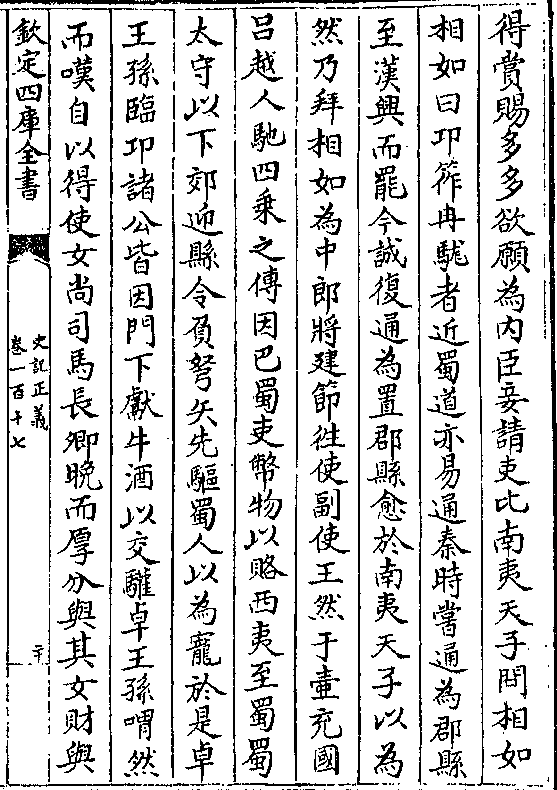 得賞賜多多欲願為内臣妾請吏比南夷天子問相如
相如曰卭筰冉駹者近蜀道亦易通秦時嘗通為郡縣
至漢興而罷今誠復通為置郡縣愈於南夷天子以為
然乃拜相如為中郎將建節徃使副使王然于壷充國
吕越人馳四乘之傳因巴蜀吏幣物以賂西夷至蜀蜀
太守以下郊迎縣令負弩矢先驅蜀人以為寵於是卓
王孫臨卭諸公皆因門下獻牛酒以交驩卓王孫喟然
而嘆自以得使女尚司馬長卿晚而厚分與其女財與
欽定四庫全書
史記正義
卷一百十七
二十